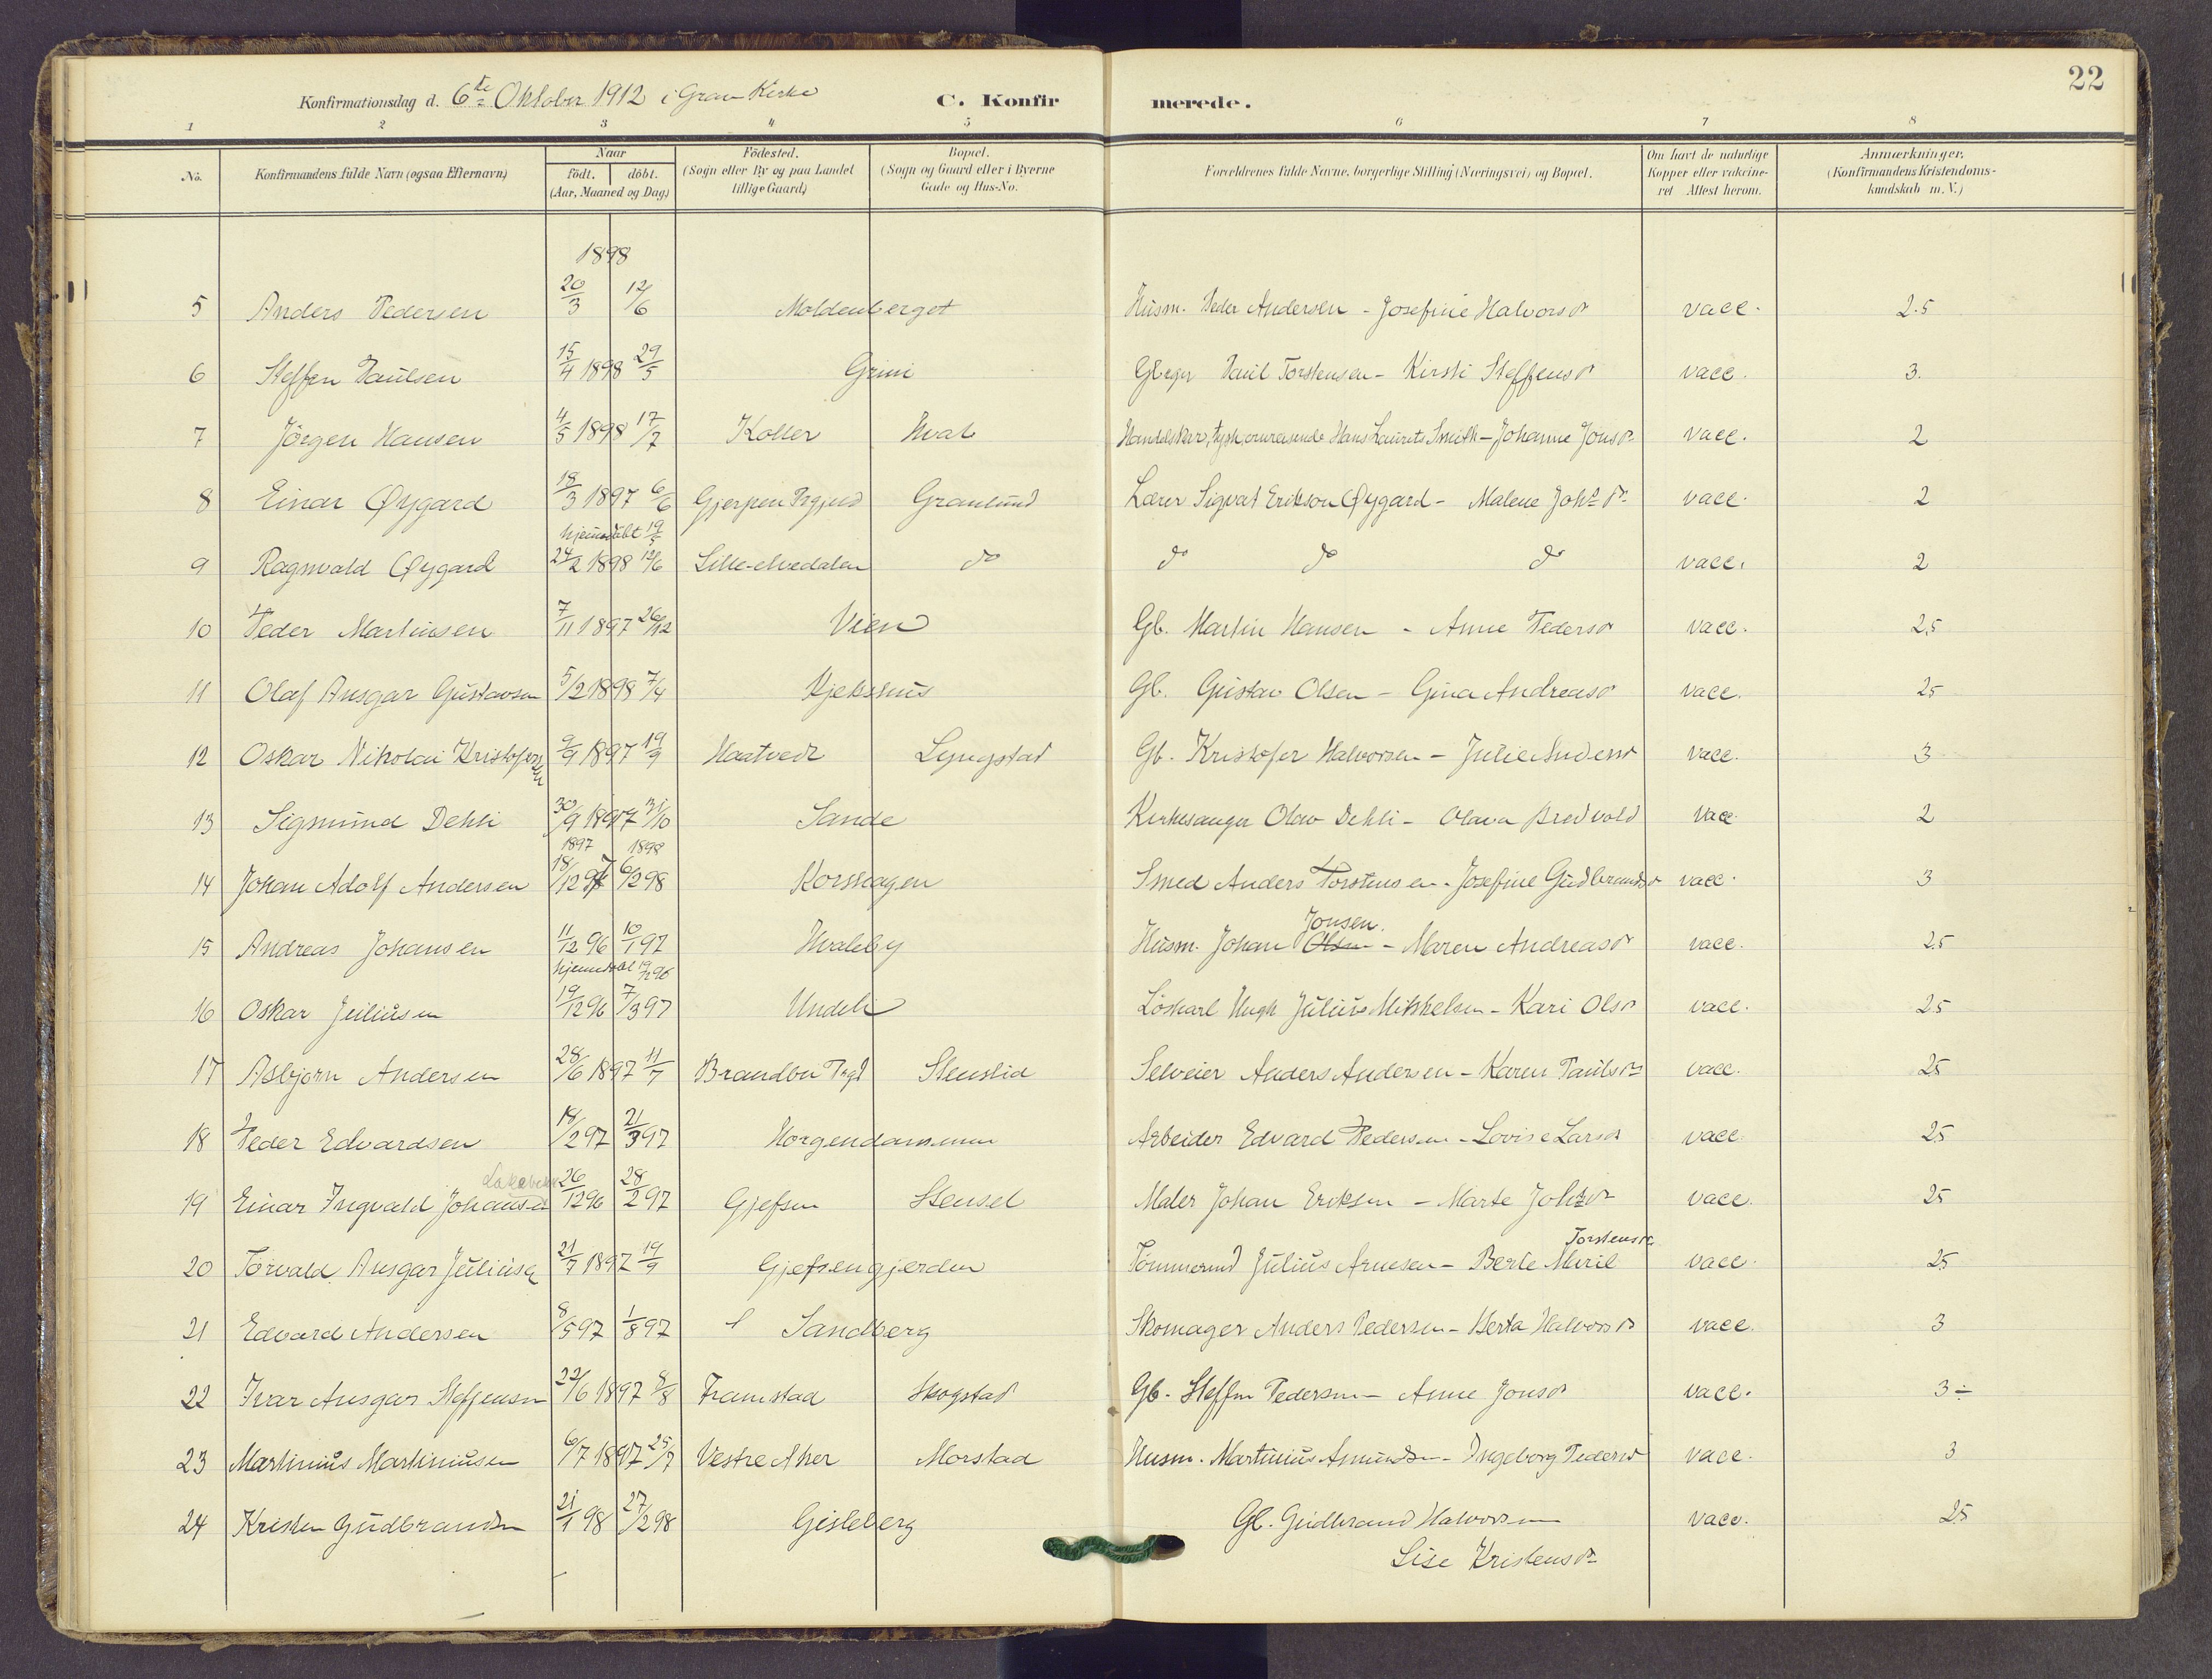 22
Konfirmationsdag d. 6te Oktober 1912 i Gran Kirke C. Konfirmerede.
1 2 3 4 5 6 7 8
No. Konfirmandens fulde Navn (ogsaa Efternavn) Naar født. døbt. (Aar, Maaned og Dag) Födested. (Sogn eller By og paa Landet tillige Gaard) Bopæl. (Sogn og Gaard eller i Byerne Gade og Hus-No. Forældrenes fulde Navne, borgerlige Stilling (Næringsvei) og Bopæl. Om havt de naturlige Kopper eller vakcineret Attest herom. Anmærkninger. (Konfirmandens Kristendomskundskab m. V.)
1898
5 Anders Pedersen 20/3 12/6 Moldenberget Husm. Peder Andersen - Josefine Halvorsdr vacc. 2.5
6 Steffen Paulsen 15/4 1898 29/5 Grini Gbruger Paul Torstensen - Kirsti Steffensdr vacc. 3.
7 Jörgen Hansen 4/5 1898 17/7 Koller Hval Hans Laurits Smith - Johanne Jonsdr vacc. 2
8 Einar Øygard 18/3 1897 6/6 Gjerpen Prgjeld Granlund Lærer Sigvat Erikson Øygard - Malene Johsdr vacc. 2
hjemmedöbt 19/5
9 Ragnvald Øygard 24/2 1898 12/6 Lille-elvedalen do do do do vacc. 2
10 Peder Martinsen 7/11 1897 26/12 Vien Gb. Martin Hansen - Anne Pedersdr vacc. 2,5
11 Olaf Ansgar Gustavsen 5/2 1898 7/4 Kjekshus Gb. Gustav Olsen - Gina Andreasdr vacc. 25
12 Oskar Nikolai Kristofersen 9/9 1897 19/9 Haatvedt Lyngstad Gb. Kristofer Halvorsen - Julie Andersdr vacc. 3
13 Sigmund Dehli 30/9 1897 31/10 Sande Kirkesanger Olav Dehli - Olava Bredvold vacc. 2
1897 1898
14 Johan Adolf Andersen 18/12 97 6/2 98 Korshagen Smed Anders Torstensen - Josefine Gudbrandsdr vacc. 3
Jonsen.
15 Andreas Johansen 11/12 96 10/1 97 Hvaleby Husm. Johan Olsen - Maren Andreasdr vacc. 25
hjemmedöbt 19/12 96
16 Oskar Juliusen 19/12 96 7/3 97 Undeli Löskarl Ungk Julius Mikkelsen - Kari Olsdr vacc. 25
17 Asbjørn Andersen 28/6 1897 11/7 Brandbu Prgd Stenslid Selveier Anders Andersen - Karen Paulsdr vacc. 25
18 Peder Edvardsen 14/2 97 21/3 97 Horgendammen Arbeider Edvard Pedersen - Lovise Larsdr vacc. 25
19 Einar Ingvald Johansen 26/12 96 28/2 97 Gjefsen Stensel Maler Johan Eriksen - Marte Johsdr vacc. 25
Torstensdr
20 Torvald Ansgar Juliusen 21/7 1897 19/9 Gjefsengjerden Tömmermd Julius Arnesen - Berte Maril vacc. 25
21 Edvard Andersen 8/5 97 1/8 97 Sandberg Skomager Anders Pedersen - Berta Halvorsdr vacc. 3
22 Ivar Ansgar Steffensen 22/6 1897 8/8 Framstad Skogstad Gb. Steffen Pedersen - Anne Jonsdr vacc. 3÷
23 Martinius Martiniusen 6/7 1897 25/7 Vestre Aker Morstad Husm. Martinius Amundsen - Ingeborg Pedersdr vacc. 3
24 Kristen Gudbrandsen 21/1 98 27/2 98 Gisleberg Gb. Gudbrand Halvorsen vacc. 25
Lise Kristensdr